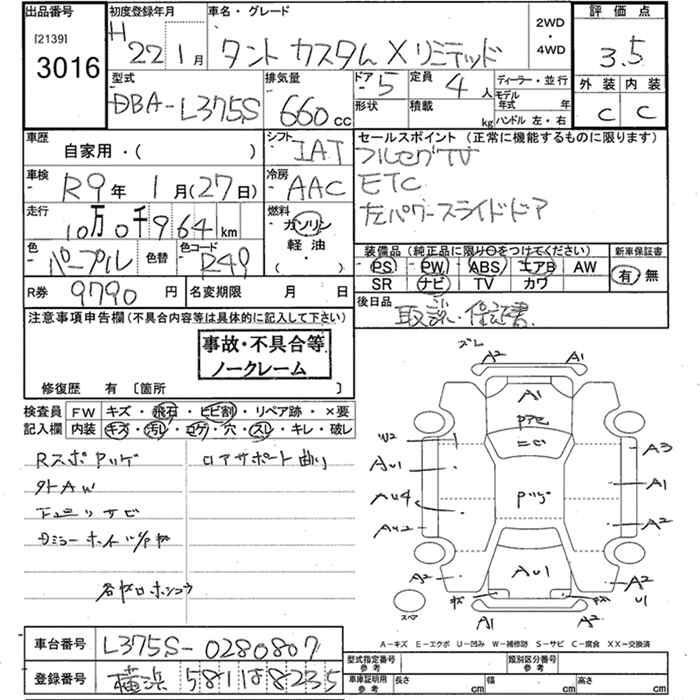 出品番号
[2139]
3016
初度登録年月
H22 1月
車名・グレード
タント カスタム X リミテッド
2WD
・
4WD
評価点
3.5
型式
DBA-L375S
排気量
660cc
ドア
5
定員
4人
ディーラー・並行
形状
積載
kg
モデル年式 年
ハンドル 左・右
外装 内装
C C
車歴
自家用・( )
シフト
IAT
セールスポイント (正常に機能するものに限ります)
フルセグTV
ETC
左パワースライドドア
車検
R9年 1月(27日)
冷房
AAC
走行
10万0千964km
燃料
ガソリン
軽油
( )
色
パープル
色替
色コード
R49
装備品 (純正品に限り○をつけてください)
PS PW ABS エアB AW
SR ナビ TV カワ
新車保証書
有 無
R券
9790円
名変期限 月 日
後日品
取説・保証書
注意事項申告欄 (不具合内容等は具体的に記入して下さい)
事故・不具合等
ノークレーム
修復歴 有 〔箇所 〕
検査員
記入欄
FW キズ・飛石・ヒビ割・リペア跡・×要
内装 キズ・汚レ・コゲ・穴・スレ・キレ・破レ
Rスポ アリゲ
ロアサポート曲り
外AW
下廻りサビ
ズレ
A2 A1
A1
W2
A3
AU1
A1
AU4
AU2
A2
アリゲ
AU1
A2
A2
U1
A1
A2
スペア
A-キズ E-エクボ U-凹み W-補修跡 S-サビ C-腐食 XX-交換済
車台番号
L375S-0280807
登録番号
横浜 581 い 8235
型式指定番号
参考
類別区分番号
参考
車庫証明用
参考
長さ cm 幅 cm 高さ cm